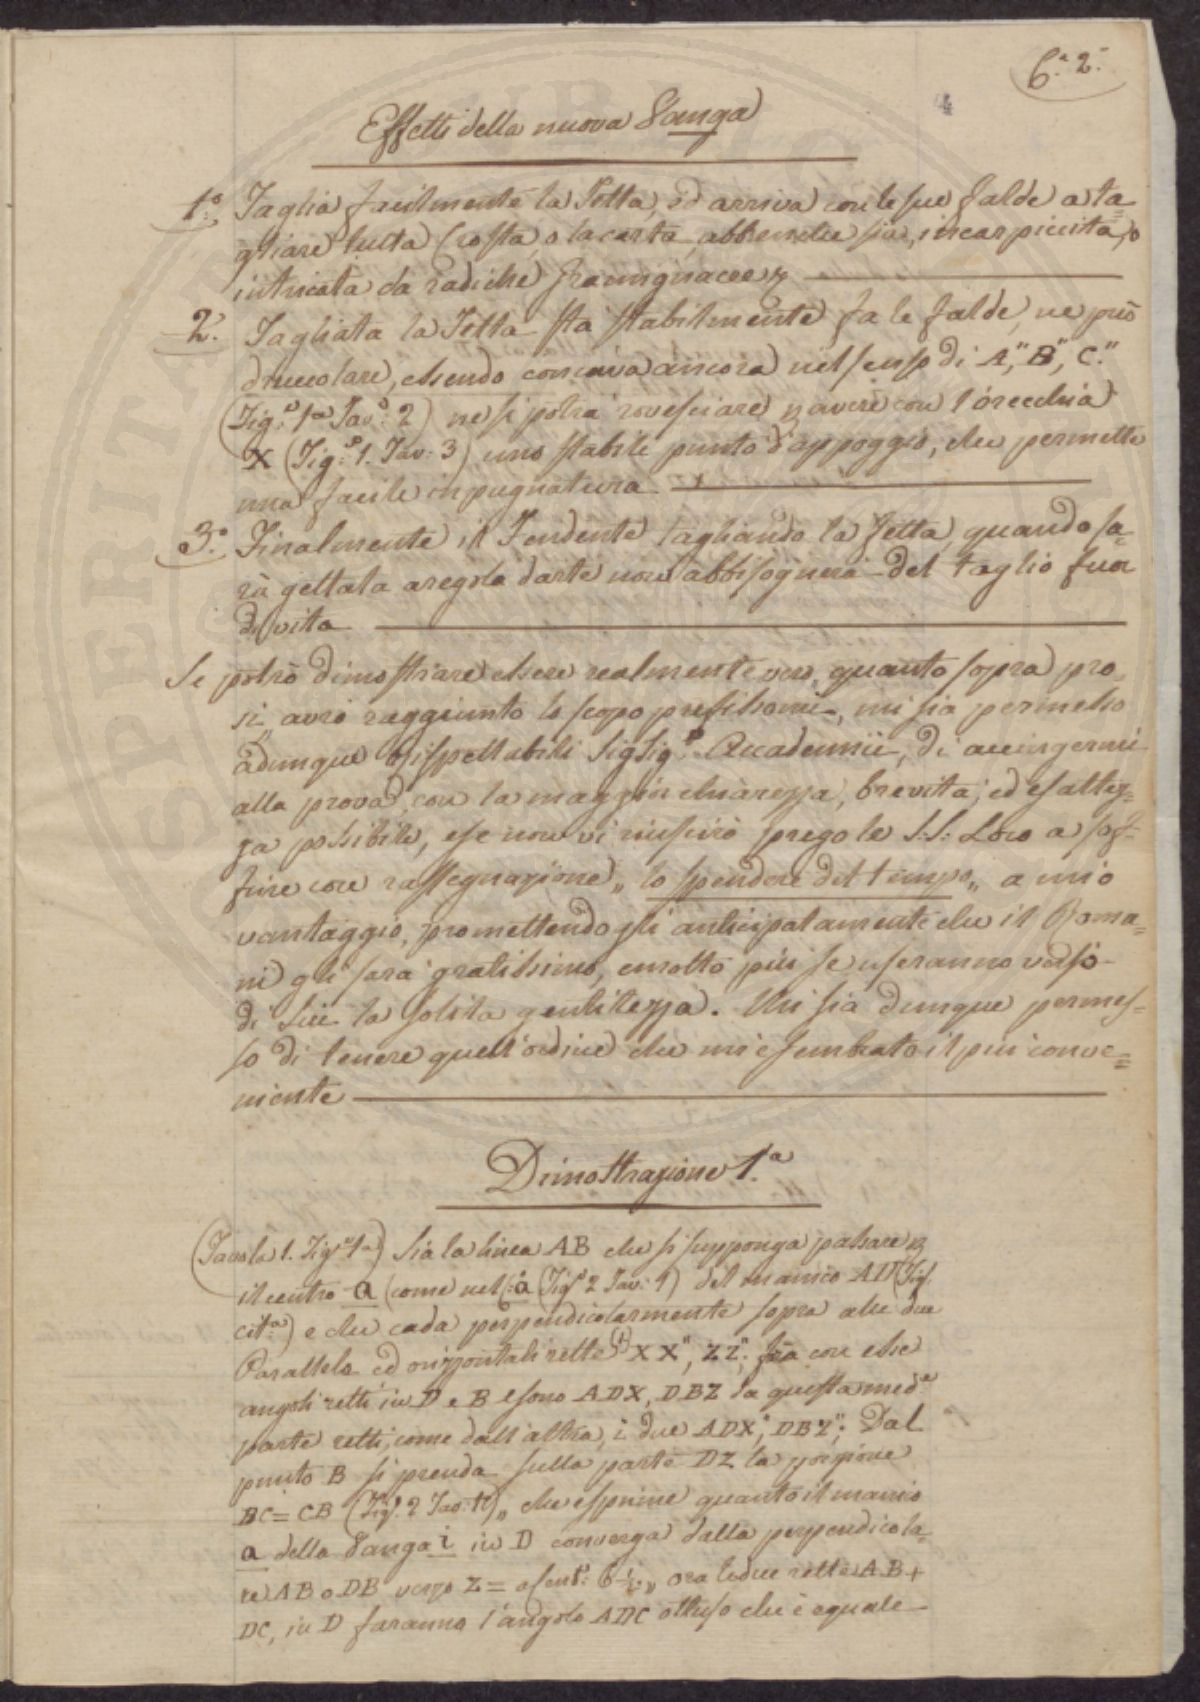 6.a 2.
Effetti della nuova Vanga
1.o Taglia facilmente la Fetta, ed arriva con le sue falde a ta=
gliare tutta Crosta, o lacerta, abbenche sia, incarpiccita, o
intricata da radiche framignacee
2. Tagliata la Fetta sta stabilmente fa le falde, ne può
druccolare, essendo concava ancora nel senso di A", B", C."
(Fig.a 1a Tav.a 2) ne si potrà rovesciare avere con l'orecchia
X (Fig.a 1. Tav: 3) uno stabile punto d'appoggio, che permette
una facile inpugnatura
3.o Finalmente, il Fendente tagliando la fetta, quando sa=
rà gettata a regola d'arte non abbisognerà del taglio fuor
di vita
Se potrò dimostrare essere realmente vero, quanto sopra pro=
si, avrò raggiunto lo scopo prefissomi, mi sia permesso
adunque rispettabili Sig Sig.i Accademici, di accingermi
alla prova, con la maggior chiarezza, brevità, ed esattez=
za possibile, e se non vi riuscirò prego le S.S. Loro a sof=
frire con rassegnazione „ lo spendere del tempo „ a mio
vantaggio, promettendogli anticipatamente che il Roma=
ni gli sarà gratissimo, e molto più se useranno verso
di Lui la solita gentilezza. Mi sia dunque permes=
so di tenere quell'ordine che mi è sembrato il più conve=
niente
Dimostrazione 1.a
(Tavola 1. Fig.a 1a) Sia la linea AB che si supponga passare
il centro a (come nel a (Fig. 2 Tav. 1) del manico AD (Fig.
cit.a) e che cada perpendicolarmente sopra alle due
Parallele ed orizzontali rette (1) XX", ZZ". fra con esse
angoli retti in D e B e sono ADX, DBZ da questa med.a
parte retti, come dall'altra, i due ADX", DBZ". Dal
punto B si prenda sulla parte DZ la porzione
BC = CB (Fig. 2 Tav: 1) „ che esprime quanto il manico
a della Vanga i in D converga dalla perpendicola=
re AB o DB verso Z = a Cent.i 6 ½ „ ora le due rette AB +
DC, in D faranno l'angolo ADC ottuso che è eguale